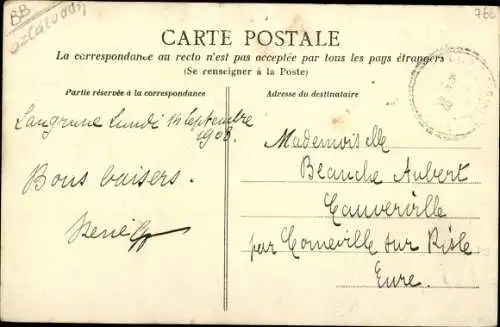 BB
Calvados
766
CARTE POSTALE
La correspondance au recto n'est pas acceptée par tous les pays étrangers
(Se renseigner à la Poste)
Partie réservée à la correspondance
Adresse du destinataire
Langrune Lundi 14 Septembre
1908.
Bons baisers.
René
Mademoiselle
Blanche Aubert
Cauverville
par Corneville sur Risle
Eure.